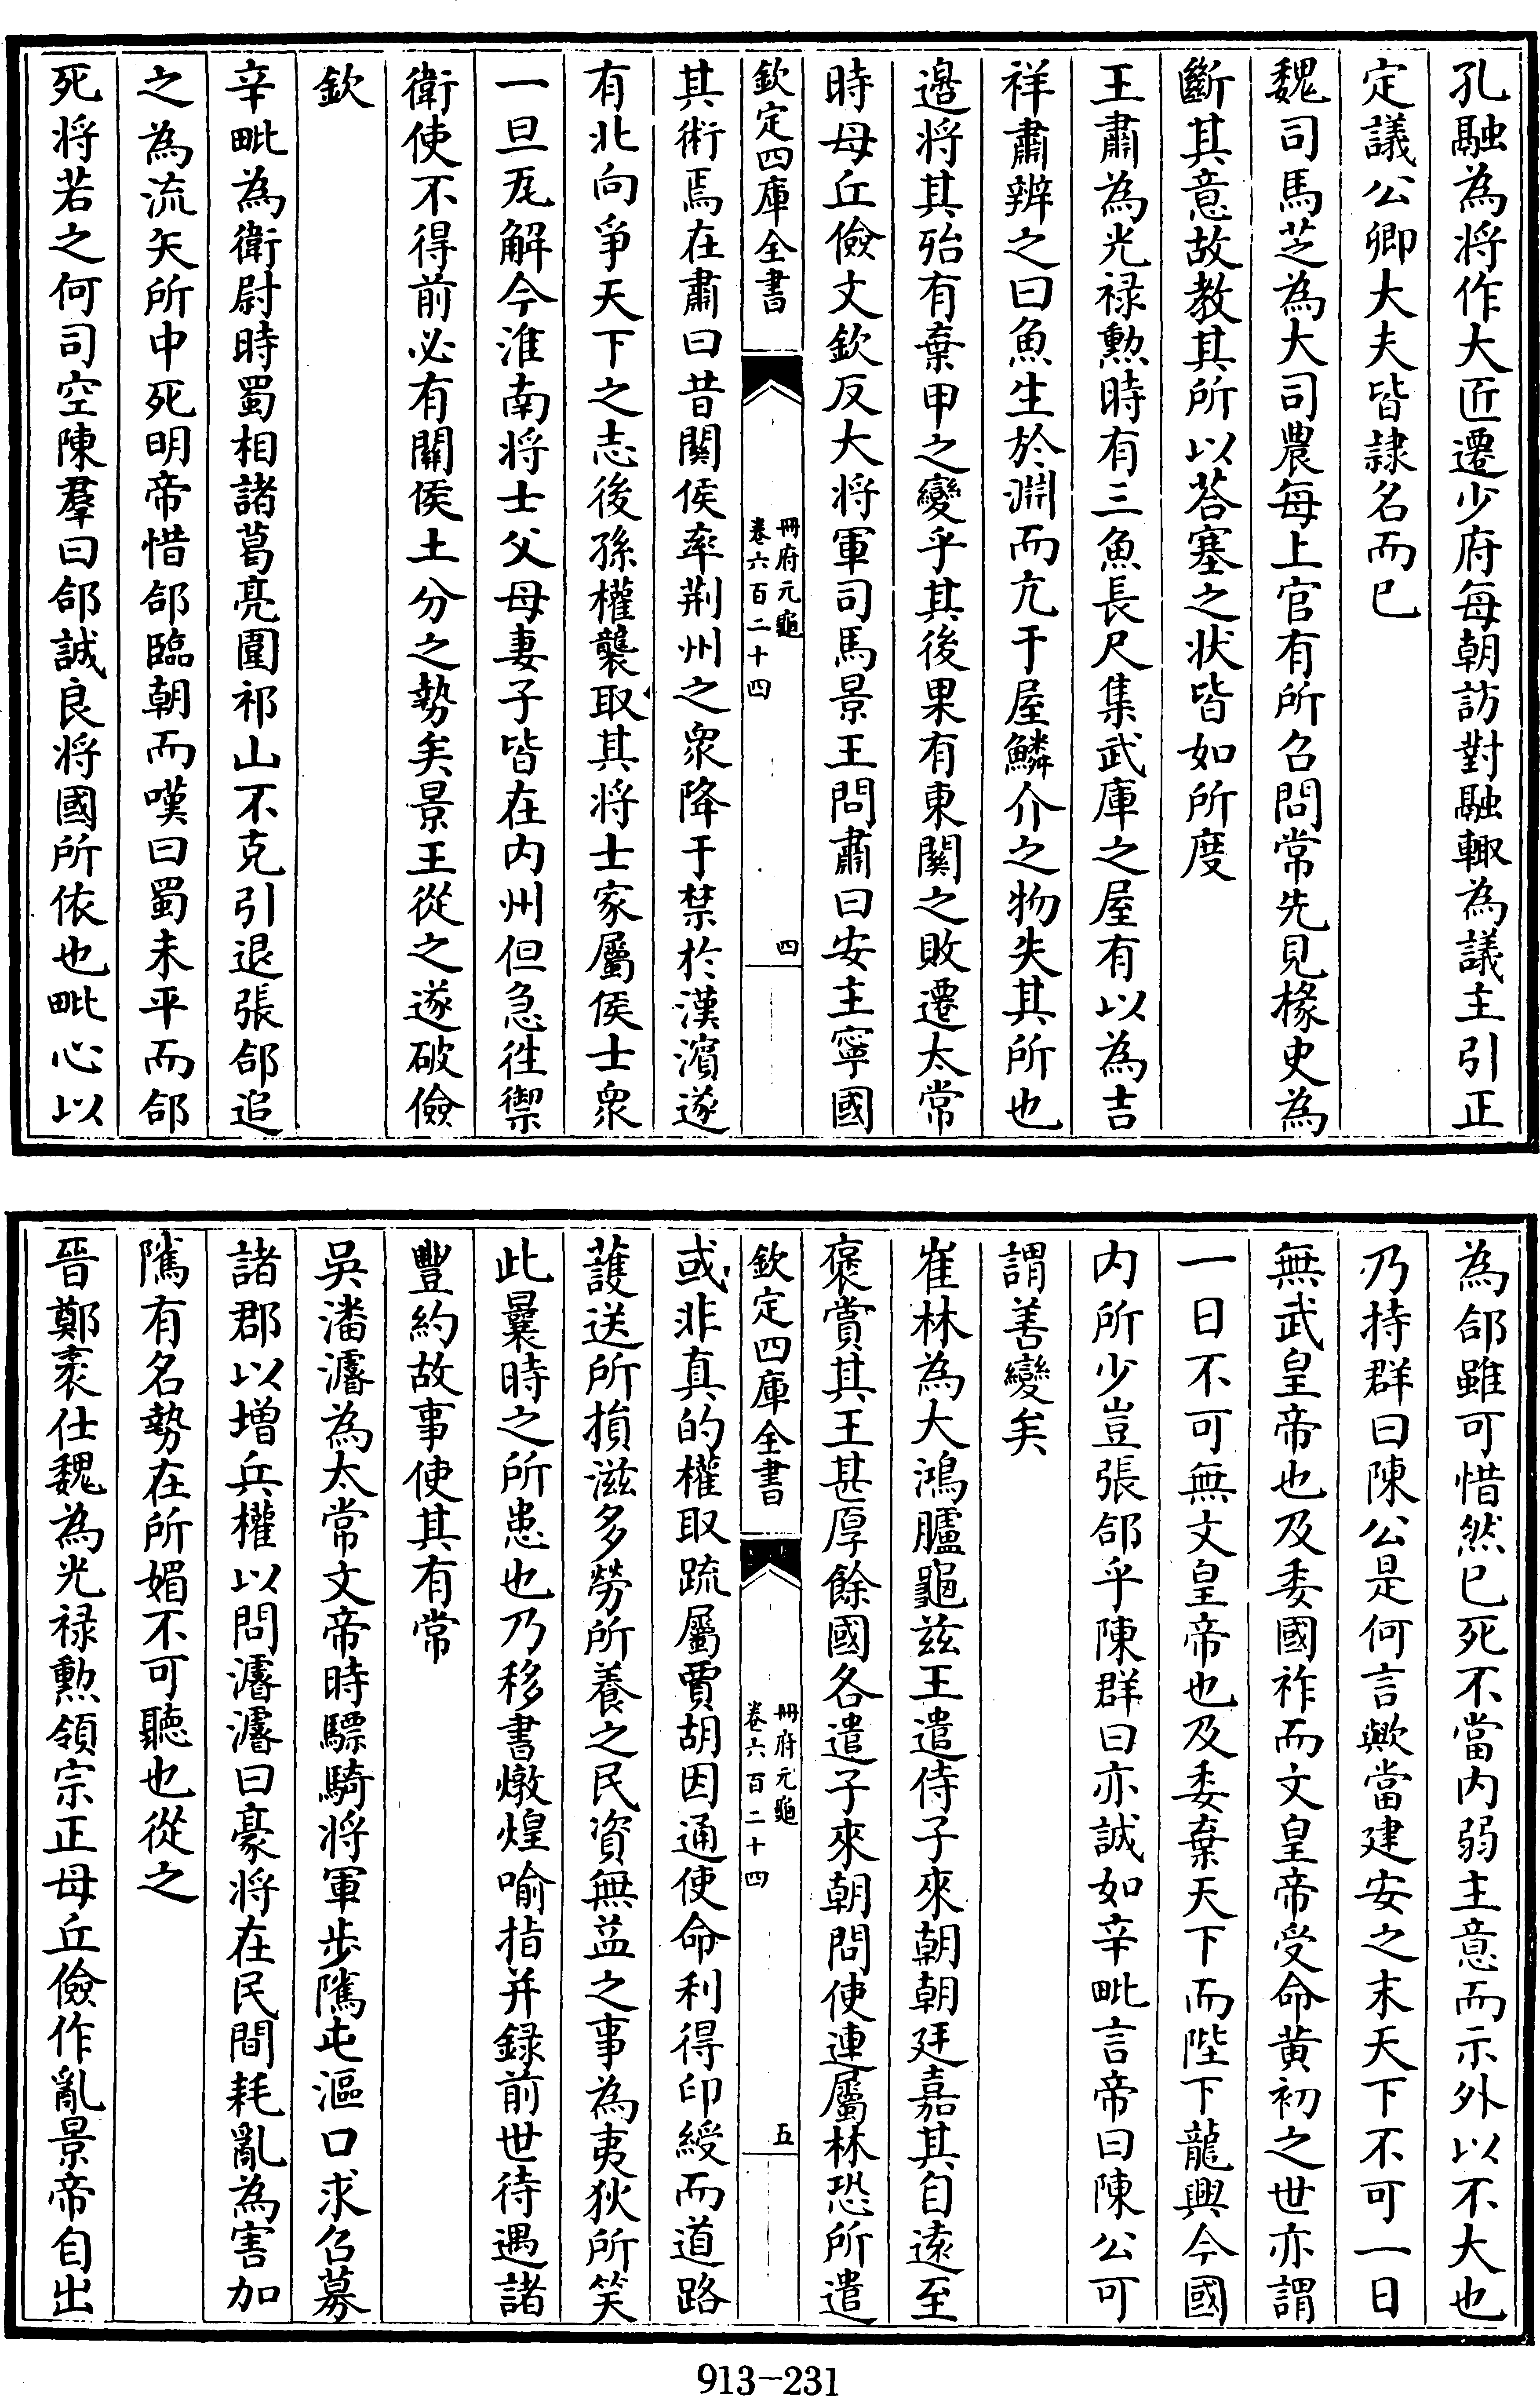 孔融為將作大匠遷少府每朝訪對融輙為議主引正
定議公卿大夫皆隷名而已
魏司馬芝為大司農每上官有所召問常先見掾史為
斷其意故教其所以荅塞之狀皆如所度
王肅為光禄勲時有三魚長尺集武庫之屋有以為吉
祥肅辨之曰魚生於淵而亢于屋鱗介之物失其所也
邉將其殆有棄甲之變乎其後果有東闗之敗遷太常
時毋丘儉文欽反大將軍司馬景王問肅曰安主寧國
欽定四庫全書
冊府元龜
卷六百二十四
四
其術焉在肅曰昔闗侯率荆州之衆降于禁於漢濱遂
有北向爭天下之志後孫權襲取其將士家屬侯士衆
一旦瓦解今淮南將士父母妻子皆在内州但急徃禦
衛使不得前必有闗侯土分之勢矣景王從之遂破儉
欽
辛毗為衛尉時蜀相諸葛亮圍祁山不克引退張郃追
之為流矢所中死明帝惜郃臨朝而嘆曰蜀未平而郃
死將若之何司空陳羣曰郃誠良將國所依也毗心以
為郃雖可惜然已死不當内弱主意而示外以不大也
乃持群曰陳公是何言歟當建安之末天下不可一日
無武皇帝也及委國祚而文皇帝受命黄初之世亦謂
一日不可無文皇帝也及委棄天下而陛下龍興今國
内所少豈張郃乎陳群曰亦誠如辛毗言帝曰陳公可
謂善變矣
崔林為大鴻臚龜兹王遣侍子來朝朝廷嘉其自逺至
褒賞其王甚厚餘國各遣子來朝問使連屬林恐所遣
欽定四庫全書
冊府元龜
卷六百二十四
五
或非真的權取疏屬賈胡因通使命利得印綬而道路
護送所損滋多勞所養之民資無益之事為夷狄所笑
此曩時之所患也乃移書燉煌喻指并録前世待遇諸
豐約故事使其有常
吳潘濬為太常文帝時驃騎將軍步隲屯漚口求召募
諸郡以增兵權以問濬濬曰豪將在民間耗亂為害加
隲有名勢在所媚不可聽也從之
晉鄭袤仕魏為光禄勲領宗正母丘儉作亂景帝自出
913-231